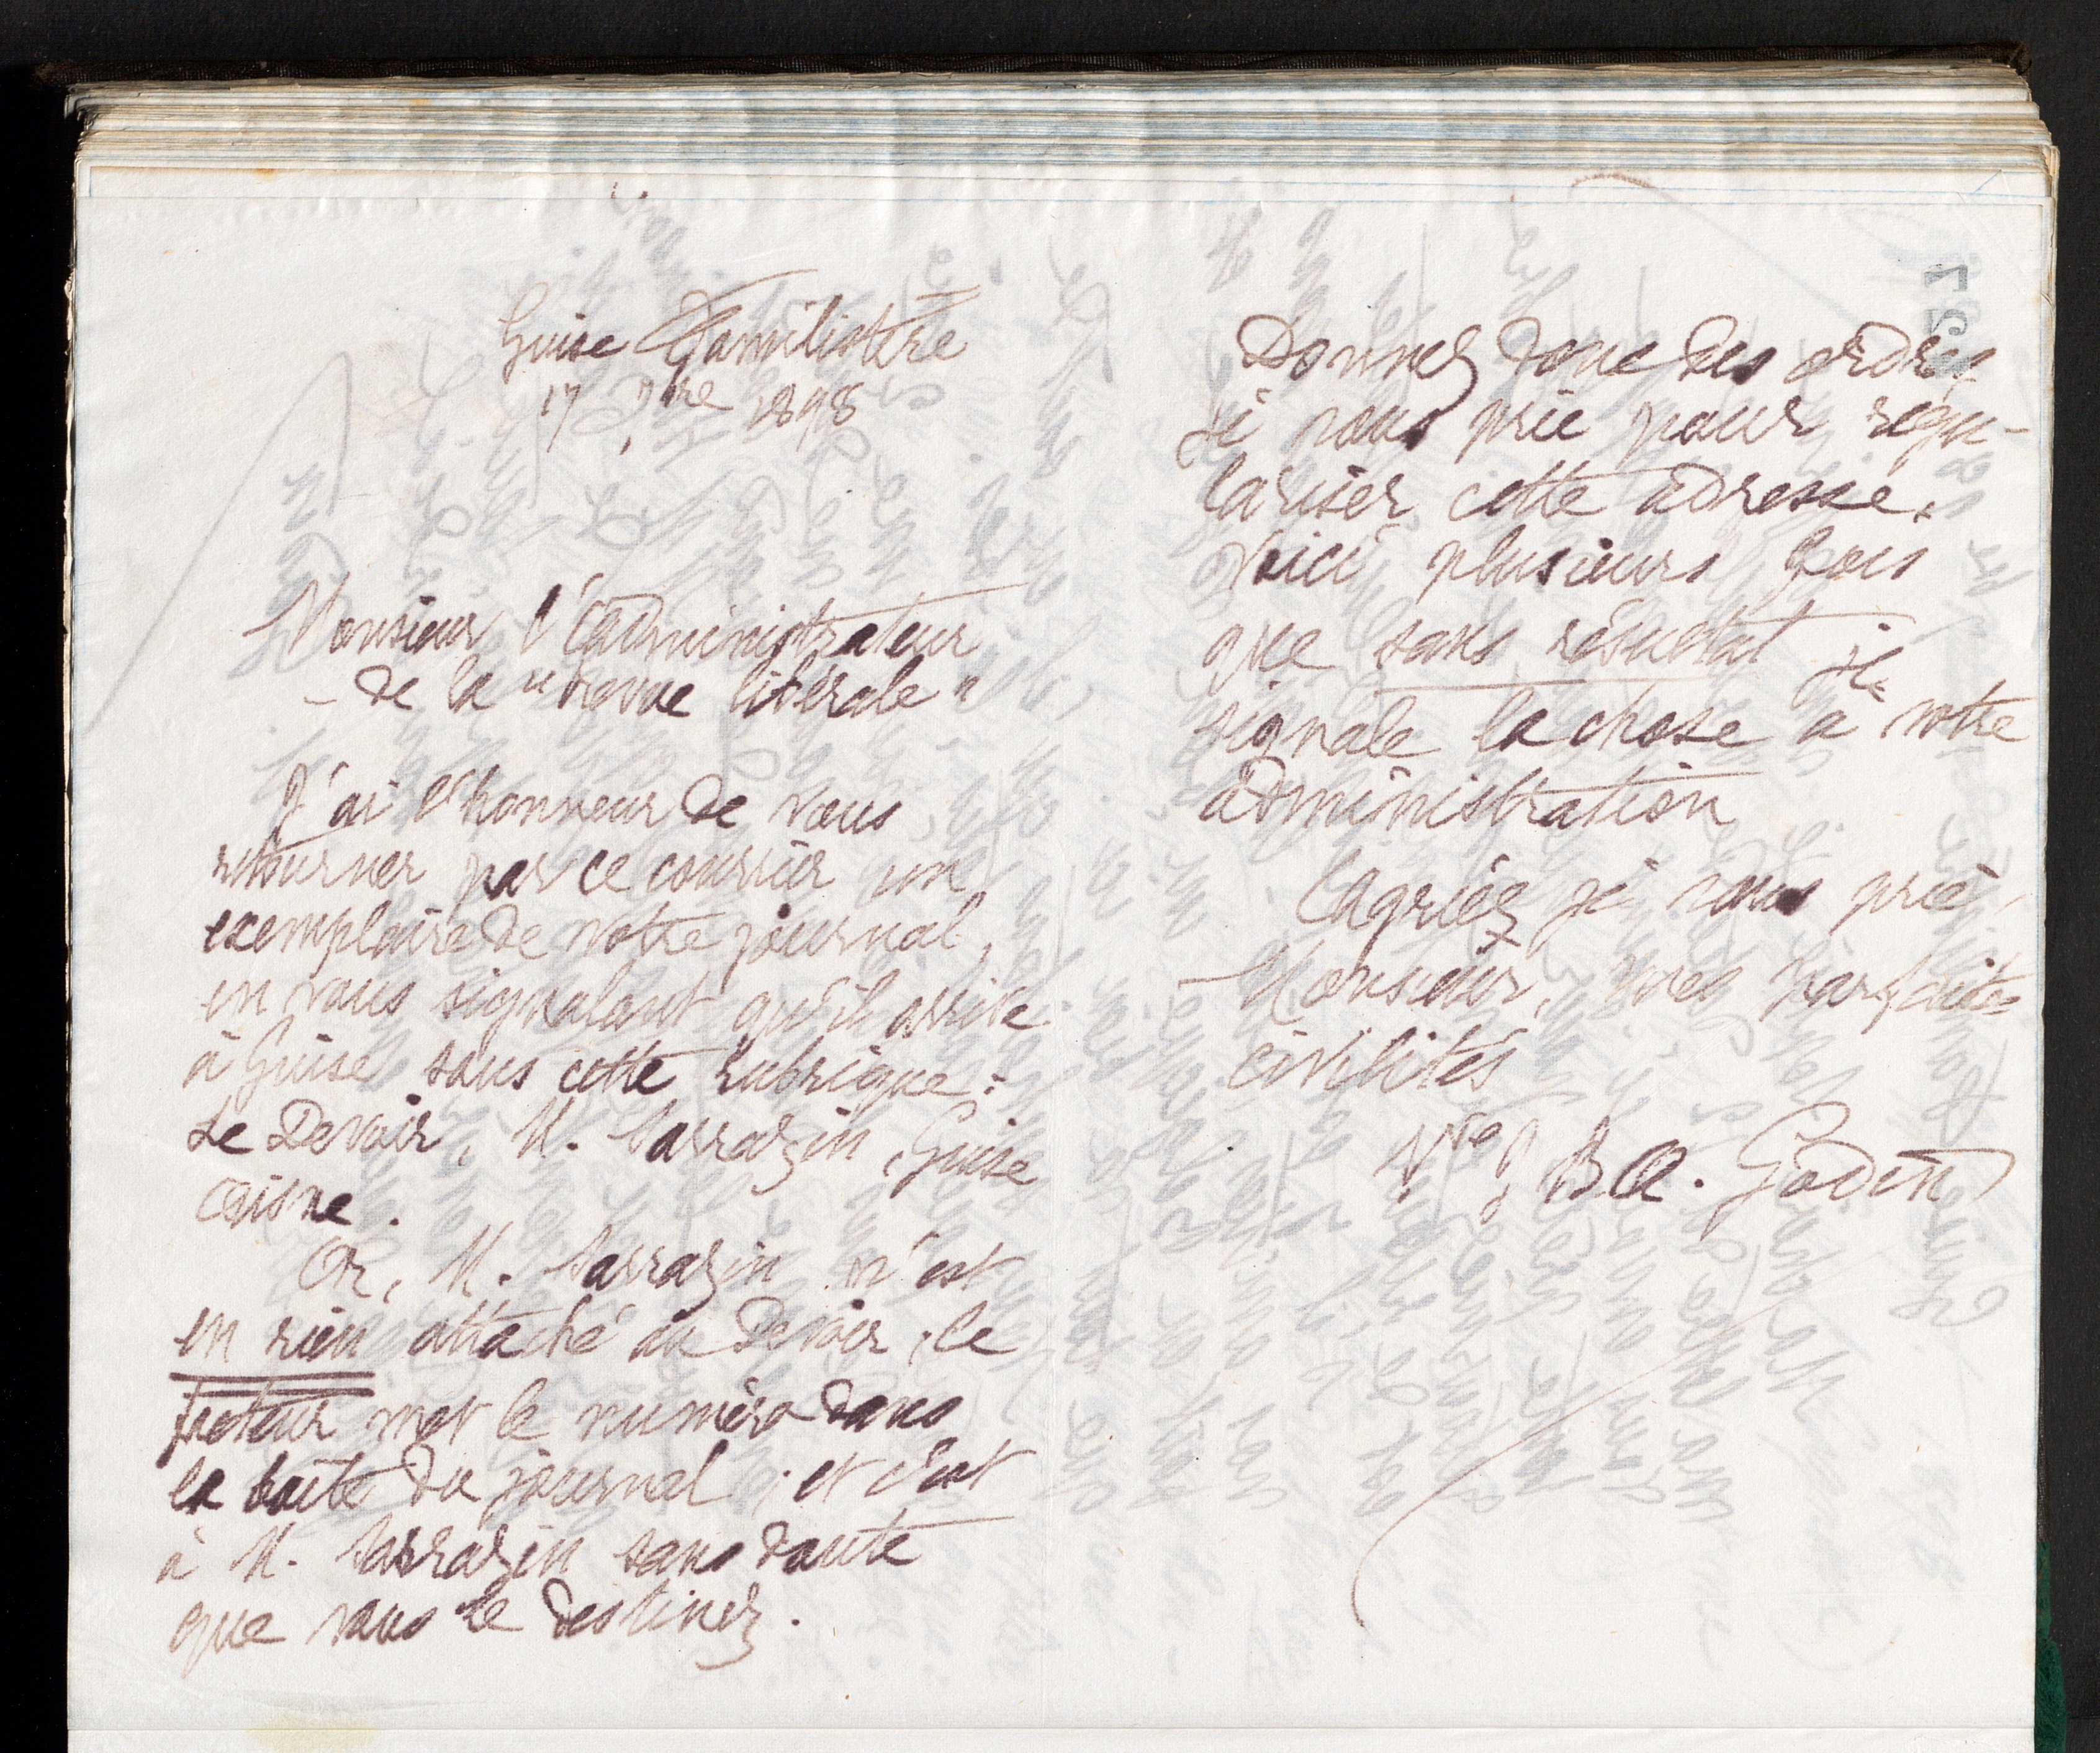 Guise Familistère
17 7bre 1898
Monsieur l'administrateur
de la "revue libérale"
J'ai l'honneur de vous
retourner par ce courrier un
exemplaire de votre journal,
en vous signalant qu'il arrive
à Guise sous cette rubrique :
Le Devoir, M. Sarrazin, Guise
Aisne.
Or, M. Sarrazin n'est
en rien attaché au Devoir, le
facteur met le numéro dans
la boîte du journal ; et c'est
à M. Sarrazin sans doute
que vous le destinez.
51
Donnez donc des ordres
je vous prie pour régu-
lariser cette adresse.
Voici plusieurs fois
que sans résultat je
signale la chose à votre
administration
Agréez je vous prie,
Monsieur, mes parfaites
civilités
Vve J. B A. Godin